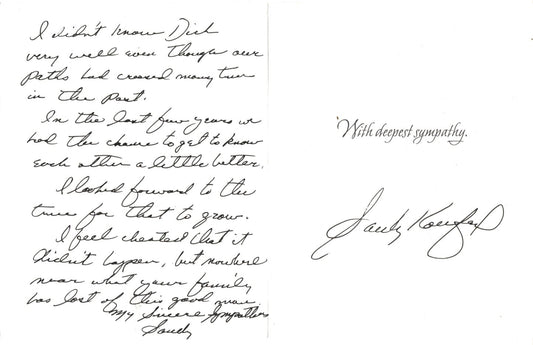 I didn't know Dick
very well even though our
paths had crossed many times
in the past.
In the last few years we
had the chance to get to know
each other a little better.
I looked forward to the
time for that to grow.
I feel cheated that it
didn't happen, but nowhere
near what your family
has lost of this good man.
My Sincere Sympathies
Sandy
With deepest sympathy.
Sandy Koufax